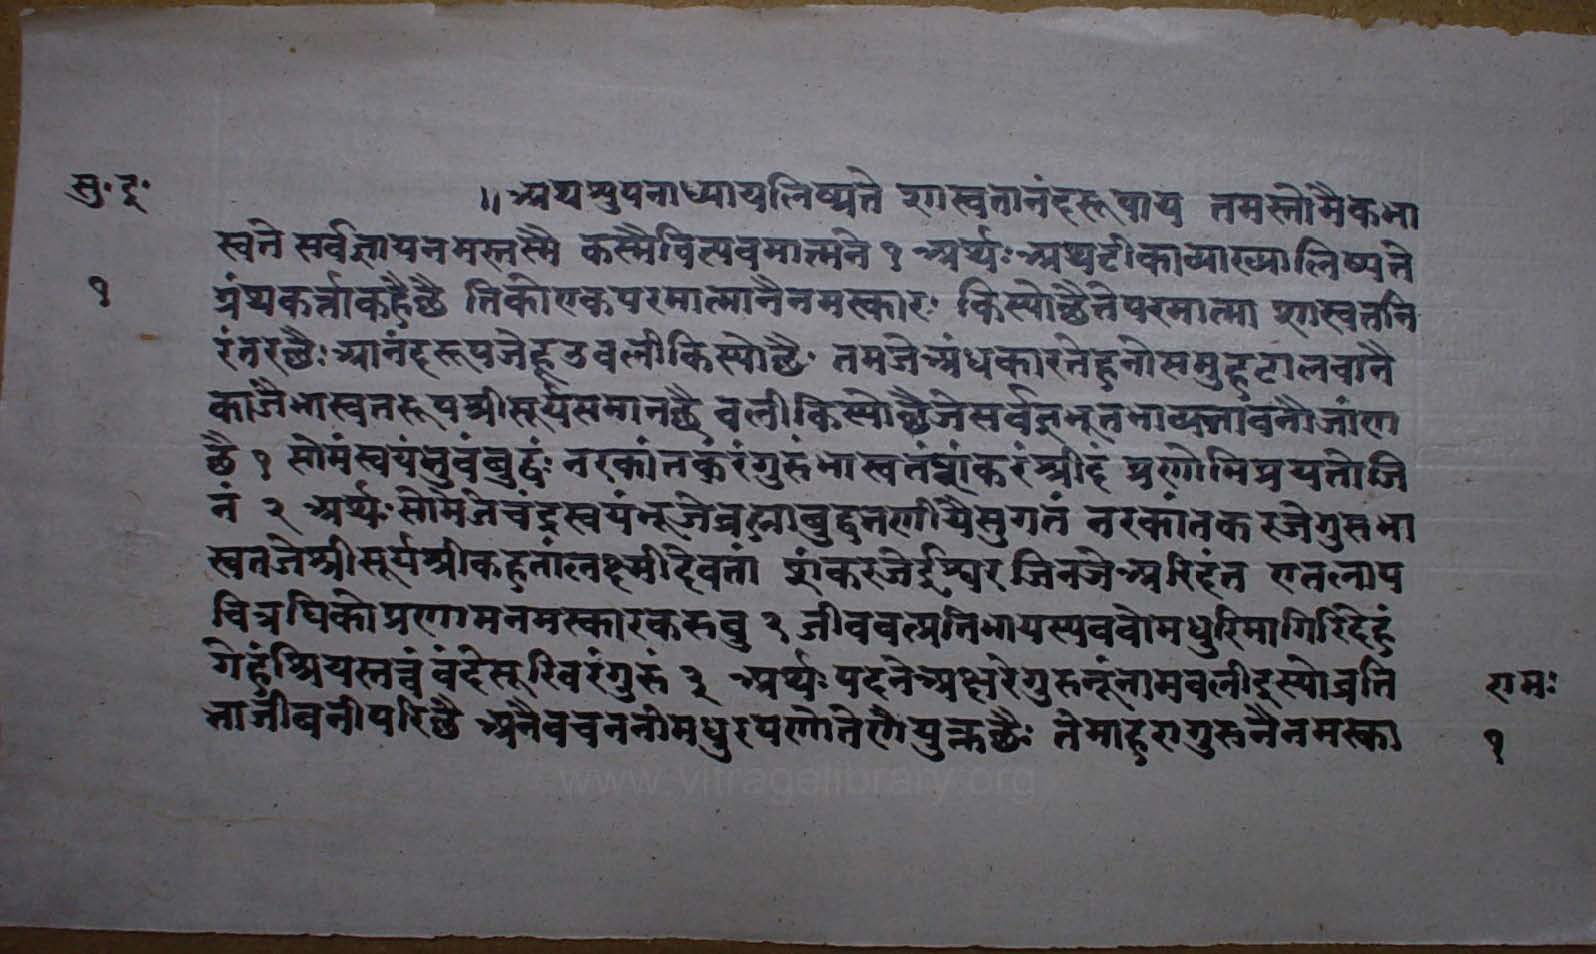 सु॰ दृ॰
१
॥ अथ सुपनाध्यायलिष्यते शास्वतानंदरूपाय तमस्तोमैकभा
स्वते सर्वज्ञायनमस्तस्मै कस्मैचित्परमात्मने १ अर्थः अथटीकाव्याख्यालिष्यते
ग्रंथकर्त्ताकहैछै तिकोएकपरमात्मानैनमस्कारः किस्योछैतेपरमात्मा शास्वतनि
रंतरछैः आनंदरूपजेह वलीकिस्योछैः तमजेअंधकारतेहनोसमुहटालवानै
काजैभास्वतरूपश्रीसूर्यसमानछै वलीकिस्योछैजेसर्वज्ञभूतभाव्यभावनौजांण
छै १ सोमंस्वयंभुवंबुद्धंः नरकांतकरंगुरुंभास्वतंशंकरंश्रीदं प्रणोमिप्रयतोजि
नं २ अर्थः सोमजेचंद्रस्वयंभूजेब्रह्माबुद्धतणीयैसुगतं नरकांतकरजेगुरुभा
स्वतजेश्रीसूर्यश्रीकहतांलक्ष्मीदेवतां शंकरजेईश्वर जिनजेअरिहंत एतलाप
वित्रथिकोप्रणामनमस्कारकरूवु २ जीववत्प्रतिभायस्यववोमधुरिमागिरिदेहं
गेहंश्रियस्तत्वं वंदेसूरिवरंगुरुं ३ अर्थः पदनेअक्षरेगुरुनूंनामवलीदृस्योव्रति
भाजीवनीपरिछै अनैवचननीमधुरपणोतेणैयुक्तछैः तेमाहरागुरुनैनमस्का
रामः
१
www.vitragalibrary.org